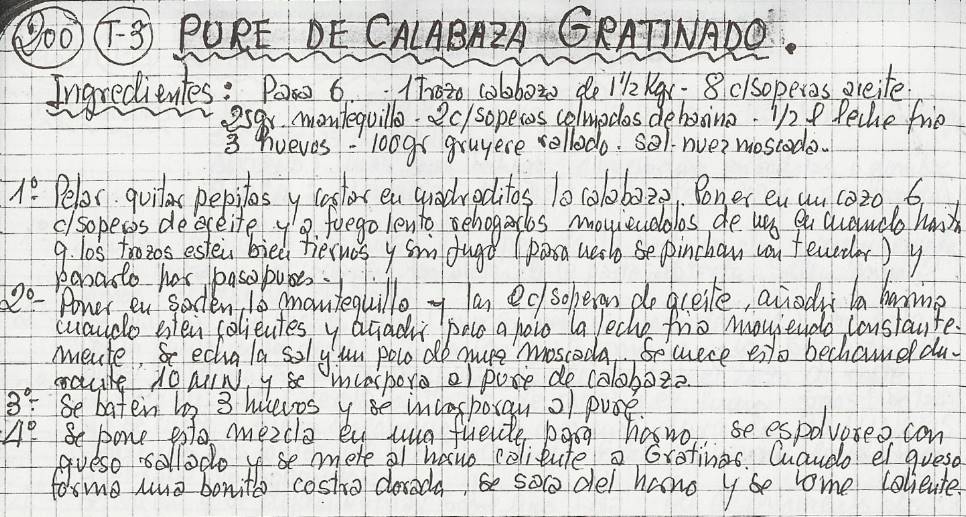 200 T-3 PURE DE CALABAZA GRATINADO.
Ingredientes: Para 6. - 1 trozo calabaza de 1 1/2 Kgr - 8 c/soperas aceite.
25gr. mantequilla - 2c/soperas colmadas de harina - 1/2 l leche fria
3 huevos - 100gr gruyere rallado. sal - nuez moscada.
1º- Pelar, quitar pepitas y cortar en cuadraditos la calabaza. Poner en un cazo 6
c/soperas de aceite y a fuego lento rehogarlos moviendolos de vez en cuando hasta
q. los trozos esten bien tiernos y sin jugo (para verlo se pinchan con tenedor) y
pasarlo por pasapures.
2º- Poner en sarten, la mantequilla y las 2c/soperas de aceite, añadir la harina
cuando esten calientes y añadir poco a poco la leche fria moviendo constante-
mente, Se echa la sal y un poco de nuez moscada. Se cuece esta bechamel du-
rante 10 MIN, y se incorpora al puré de calabaza.
3º- Se baten los 3 huevos y se incorporan al puré.
4º- Se pone esta mezcla en una fuente para horno, se espolvorea con
queso rallado y se mete al horno caliente a Gratinar. Cuando el queso
forma una bonita costra dorada, se saca del horno y se come caliente.